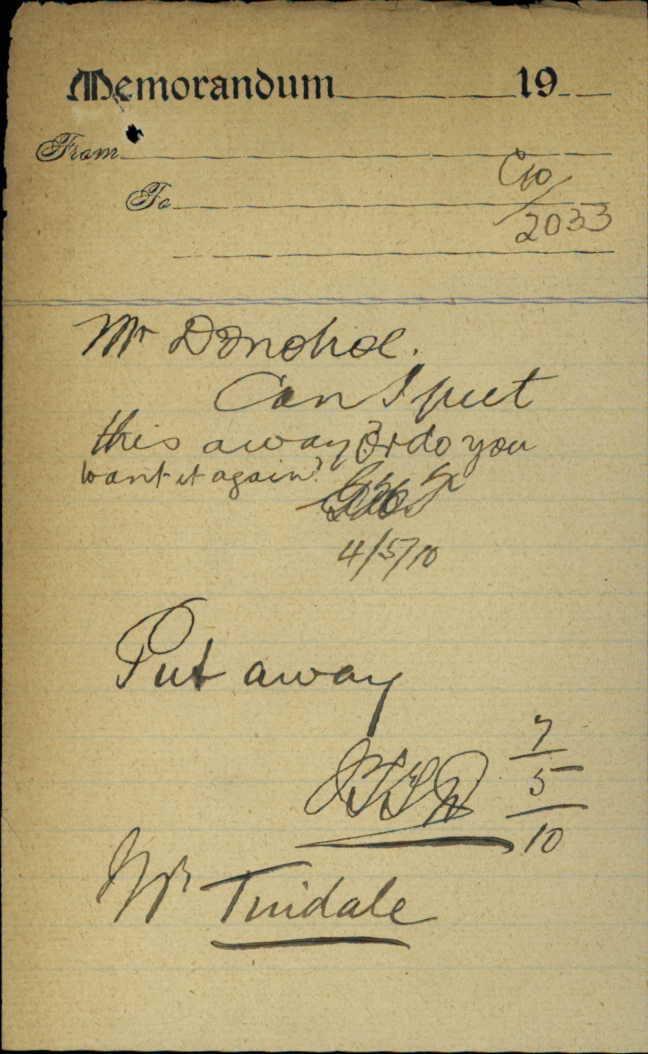 Memorandum 19
From
To
C10/2033
Mr Donohoe.
Can I put
this away? Or do you
want it again?
4/5/10
Put away
7/5/10
Mr Tindale